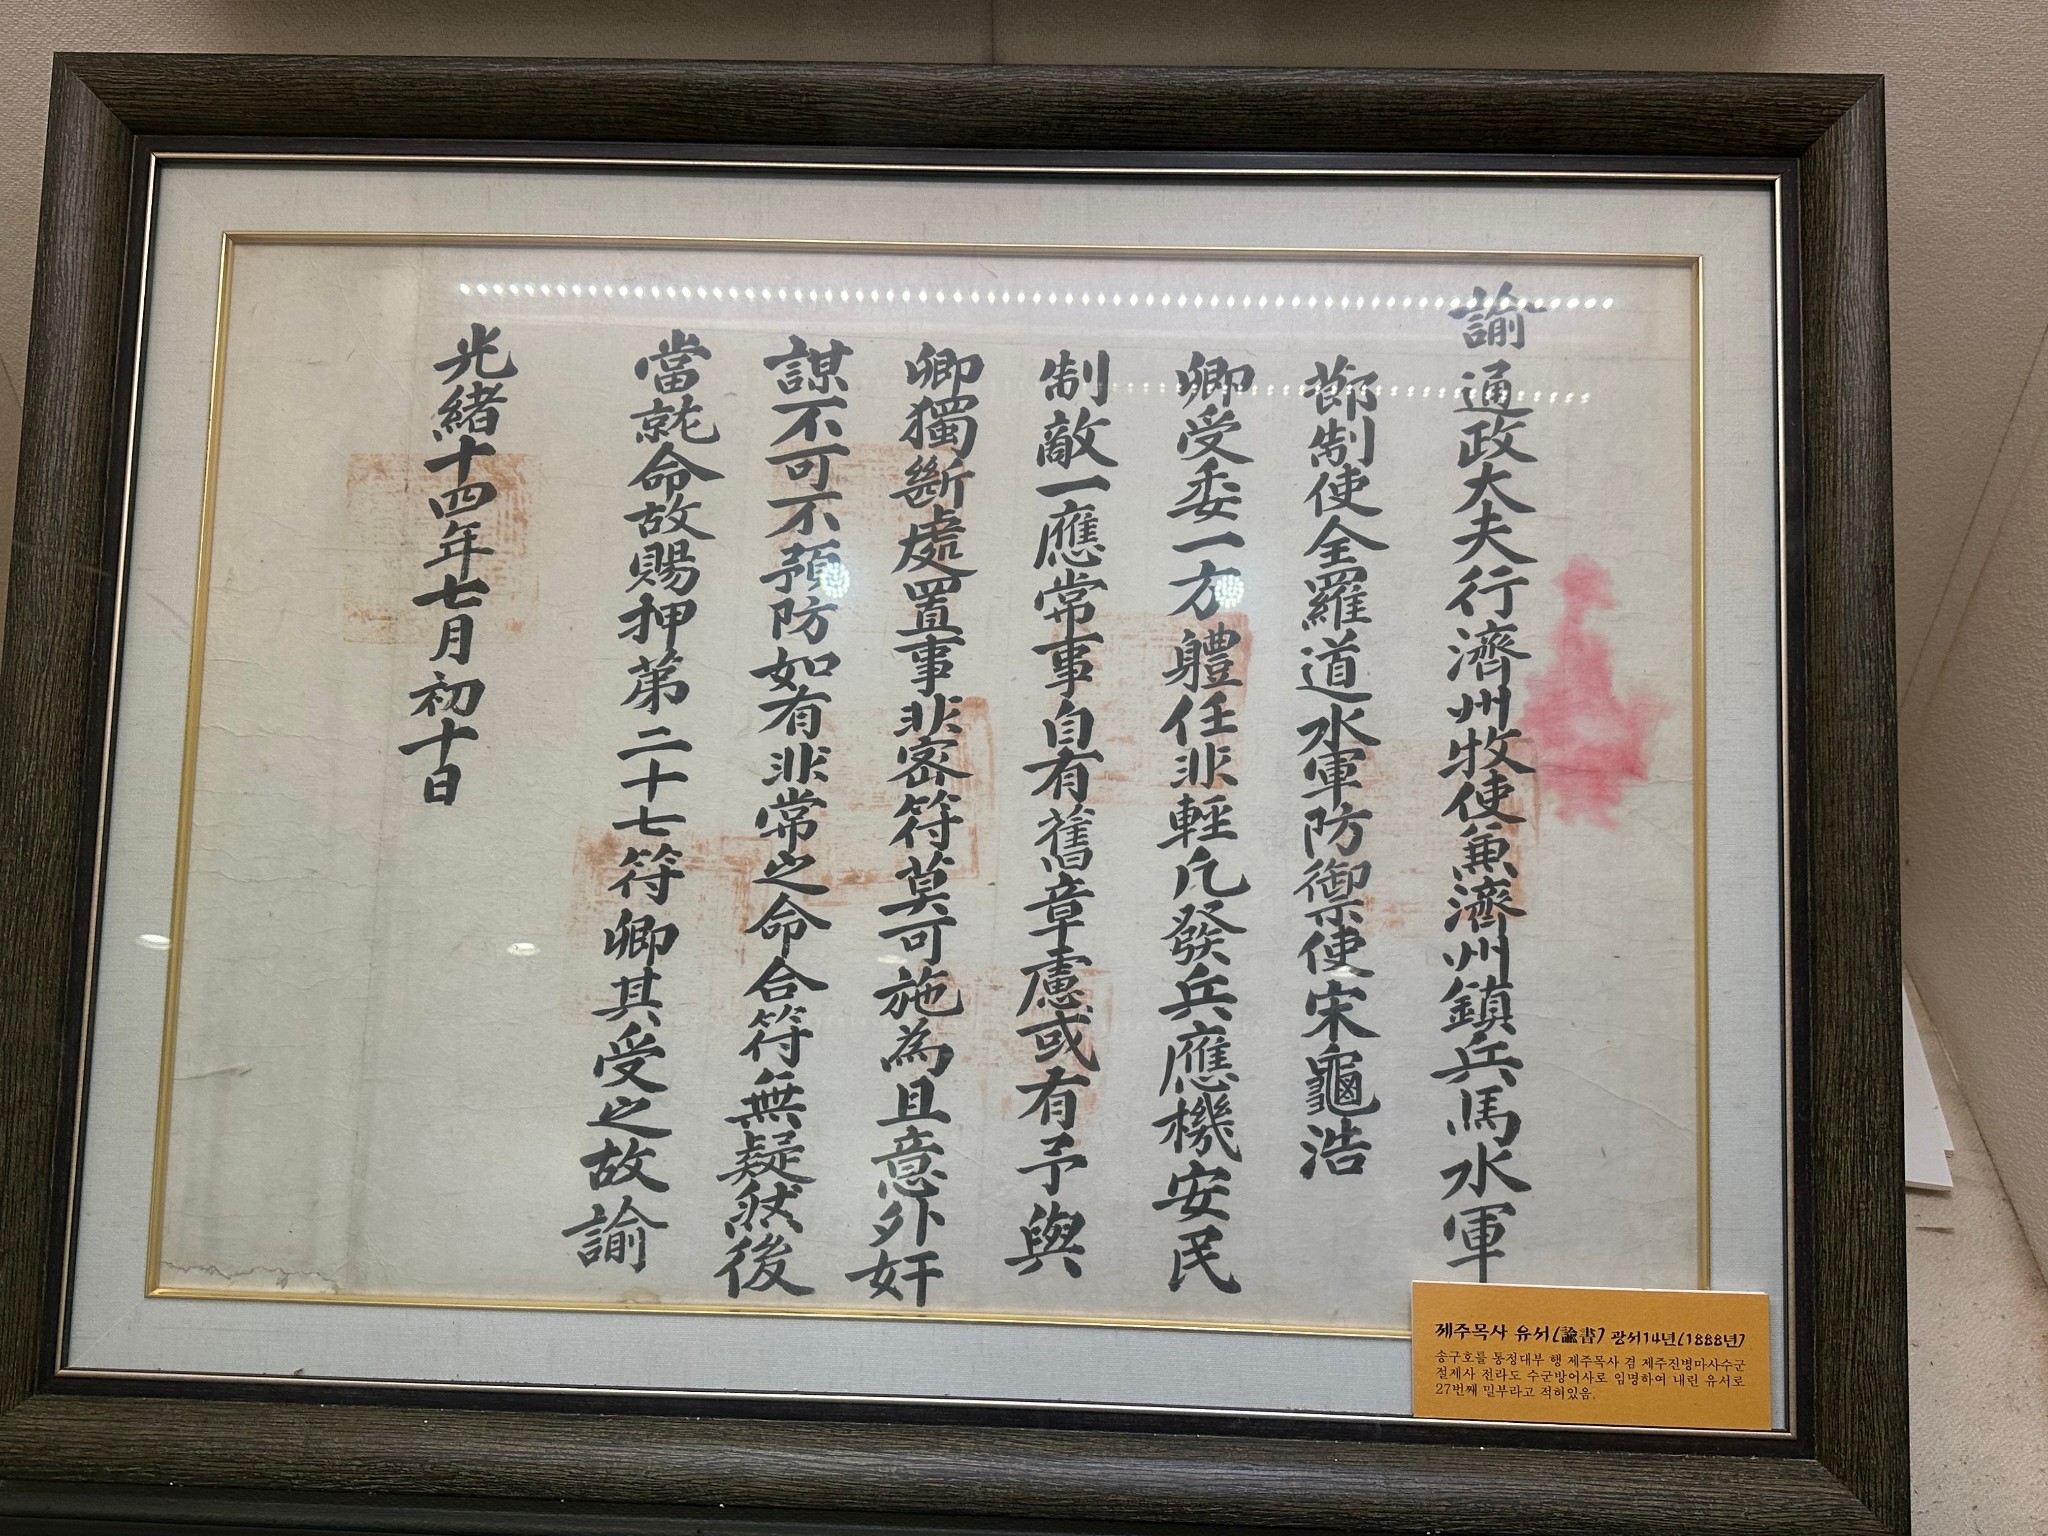 諭通政大夫行濟州牧使兼濟州鎭兵馬水軍
節制使全羅道水軍防禦使宋龜浩
卿受委一方軆任非輕凡發兵應機安民
制敵一應常事自有舊章慮或有予與
卿獨斷處置事非密符莫可施為且意外奸
謀不可不預防如有非常之命合符無疑然後
當就命故賜押第二十七符卿其受之故諭
光緖十四年七月初十日
제주목사 유서(諭書) 광서14년(1888년)
송구호를 통정대부 행 제주목사 겸 제주진병마사수군
절제사 전라도 수군방어사로 임명하여 내린 유서로
27번째 밀부라고 적혀있음.